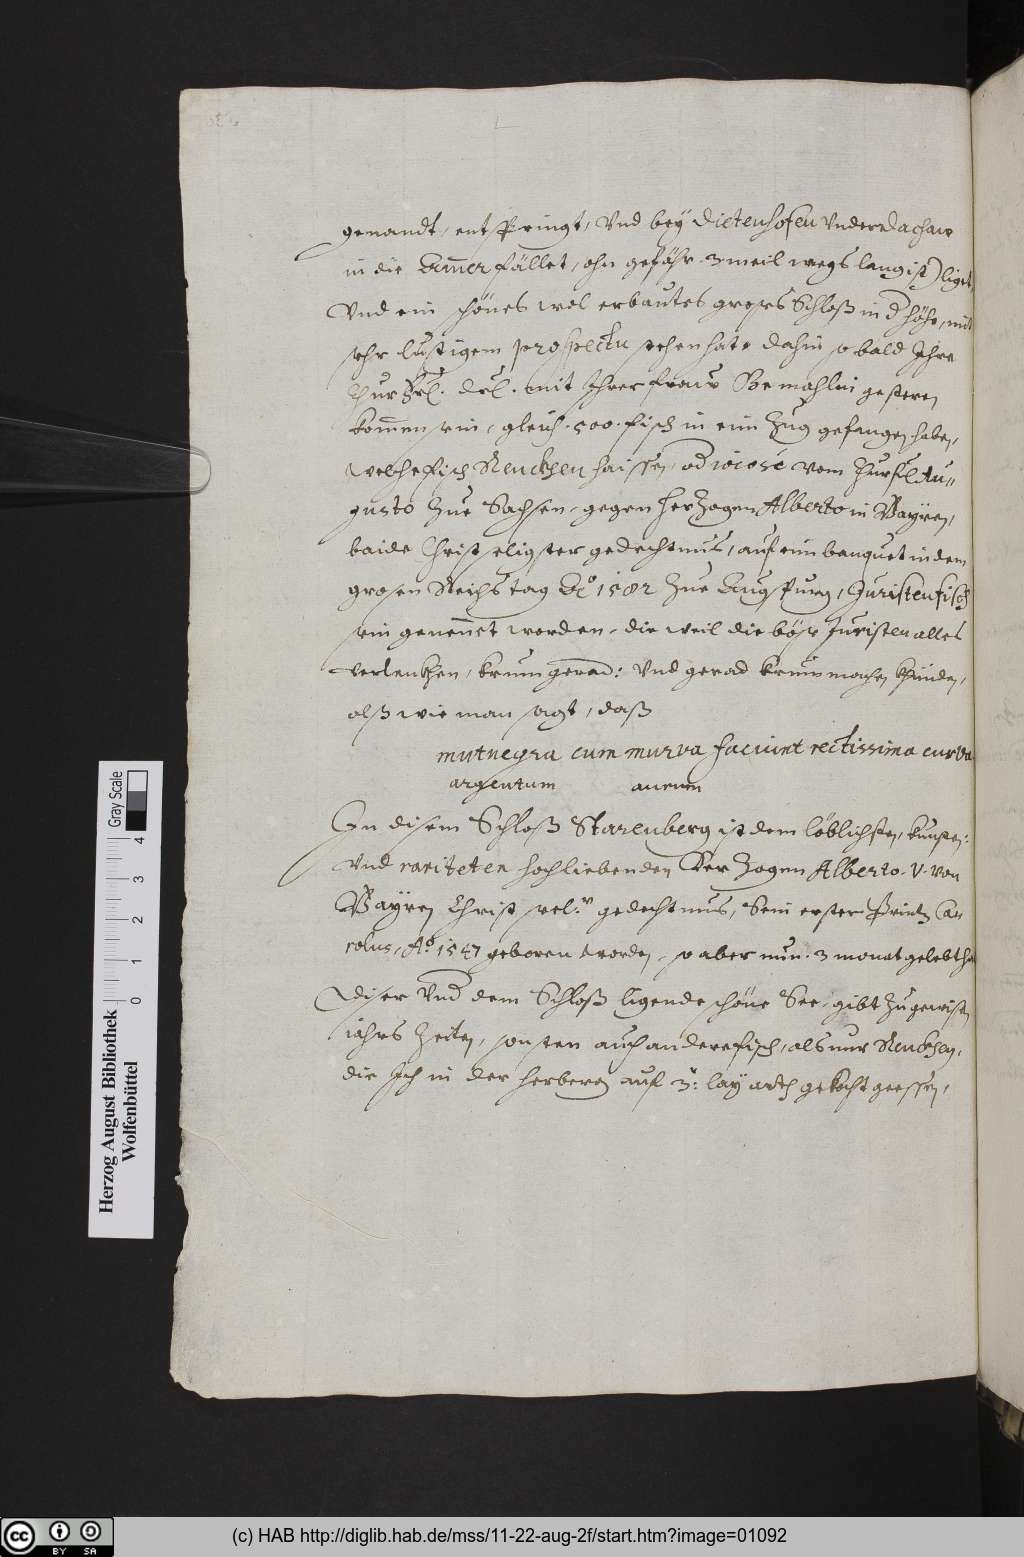 genandt, entspringt, Vnd beӱ Dietenhofen Vnder Dachaw
in die Am̄er fället, ohn gefähr 3 meil wegs lang ist) ligt,
Vnd ein schönes wol erbautes groses Schloß in d höhe, mit
sehr lustigem prospectu sehen hat. dahin so bald Ihre
Churfrl. drl. mit Ihrer fraw Gemahlin gesteren
kom̄en sein, gleich 500 fisch in eim Zug gefangen haben,
welche fisch Renckhen haissen, od iocosè vom Churfl Au=
gusto Zue Sachsen, gegen herzogen Alberto in Baÿren,
baide Christseligster gedechtnus, auf eim banquet in dem
grosen Reichstag Aõ 1582 Zue Augspurg, Juristenfisch
sein genen̄et worden, die weil die böse Juristen alles
verlenckhen, krum gerad: Vnd gerad krum machen khünden,
alß wie man sagt, daß
mutnegra cum murva faciunt rectissima curva
argentum aurum
In disem Schloß Starenberg ist dem löblichsten, kunsten:
Vnd rariteten hochliebenden Herzogen Alberto. V. von
Baÿren Christ sel: gedechtnus, Sein erster Printz Ca
rolus, Aõ 1547 geboren worden, so aber nun 3 monat gelebt ha
Diser Vnd dem Schloß ligende schöne See, gibt zu gewisen
jahrs Zeiten, sonsten auch andere fisch, als nur Renckhen,
die Ich in der herberg auf 3: laÿ arth gekocht geessen,
Herzog August Bibliothek
Wolfenbüttel
Gray Scale
0 1 2 3 4
0 1 2 3 4
cc BY SA
(c) HAB http://diglib.hab.de/mss/11-22-aug-2f/start.htm?image=01092